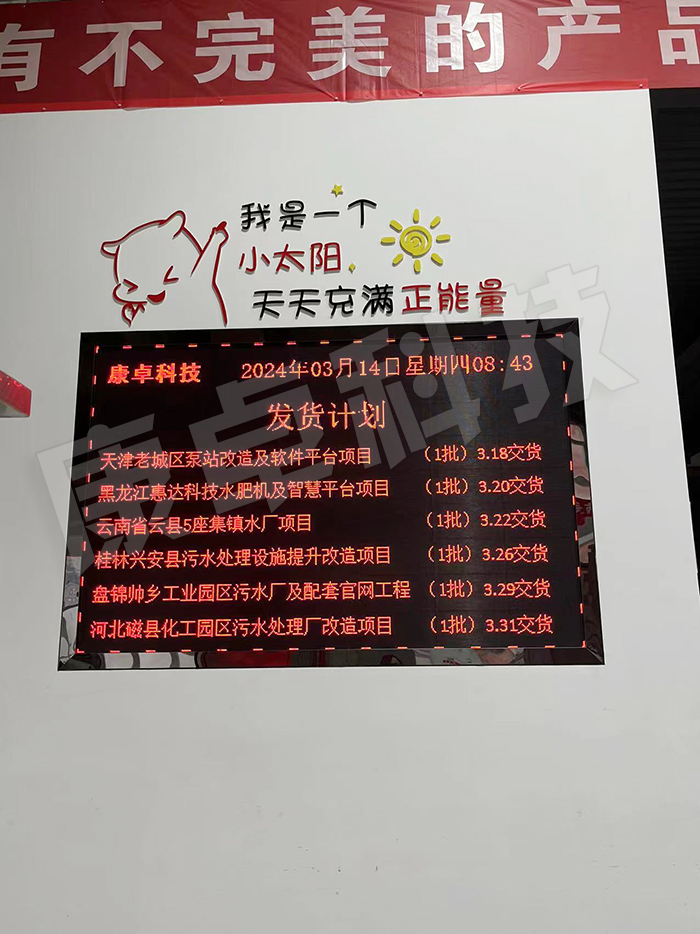 有不完美的产品
我是一个
小太阳,
天天充满正能量
康卓科技 2024年03月14日星期四08:43
发货计划
天津老城区泵站改造及软件平台项目 （1批）3.18交货
黑龙江惠达科技水肥机及智慧平台项目 （1批）3.20交货
云南省云县5座集镇水厂项目 （1批）3.22交货
桂林兴安县污水处理设施提升改造项目 （1批）3.26交货
盘锦帅乡工业园区污水厂及配套官网工程 （1批）3.29交货
河北磁县化工园区污水处理厂改造项目 （1批）3.31交货
康卓科技